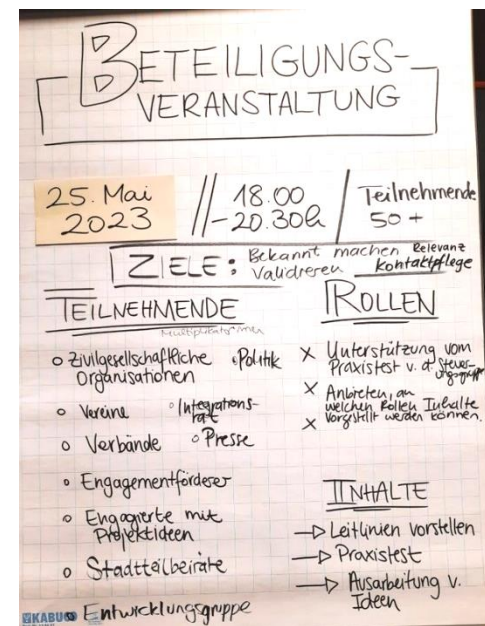 BETEILIGUNGS-
VERANSTALTUNG
25. Mai
2023
18.00
- 20.30h
Teilnehmende
50 +
ZIELE: Bekannt machen Relevanz
Validieren Kontaktpflege
TEILNEHMENDE
Multiplikator*innen
o Zivilgesellschaftliche
Organisationen
o Politik
o Vereine
o Integrations-
rat
o Verbände
o Presse
o Engagementförderer
o Engagierte mit
Projektideen
o Stadtteilbeiräte
o Entwicklungsgruppe
ROLLEN
x Unterstützung vom
Praxistest v. d. Steuer-
ungsgruppe
x Anbieten, an
welchen Rollen Inhalte
x vorgestellt werden können.
INHALTE
→ Leitlinien vorstellen
→ Praxistest
→ Ausarbeitung v.
Ideen